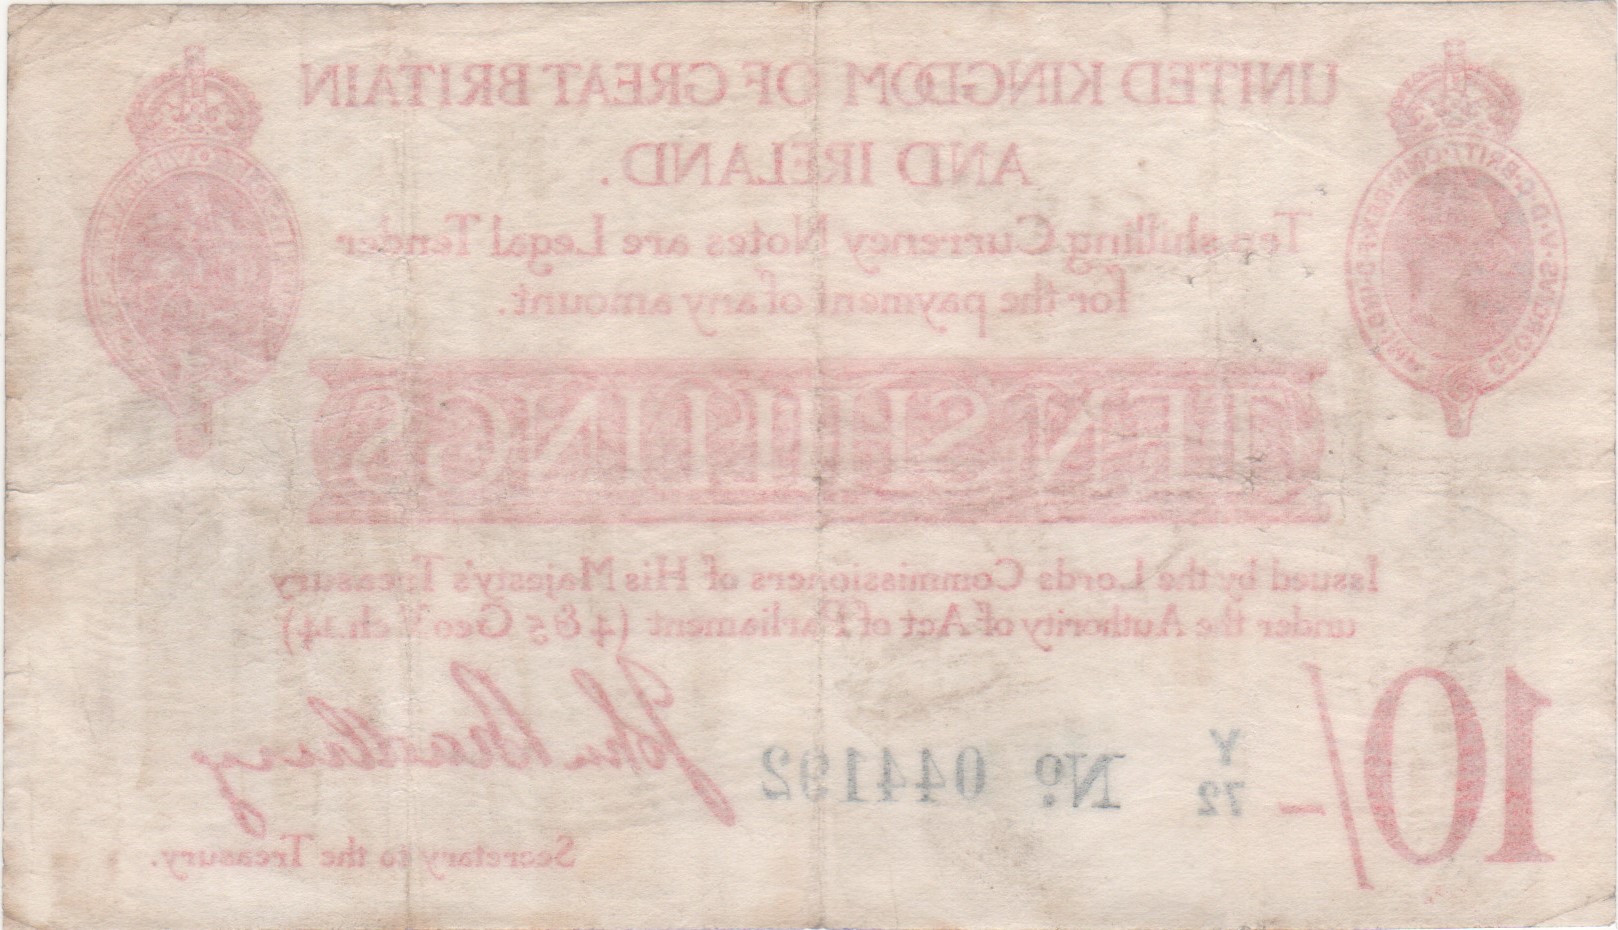 UNITED KINGDOM OF GREAT BRITAIN
AND IRELAND.
Ten shilling Currency Notes are Legal Tender
for the payment of any amount.
TEN SHILLINGS
Issued by the Lords Commissioners of His Majesty's Treasury
under the Authority of Act of Parliament (4 & 5 Geo. V ch. 14)
10/-
Y
72
No. 044192
John Bradbury
Secretary to the Treasury.